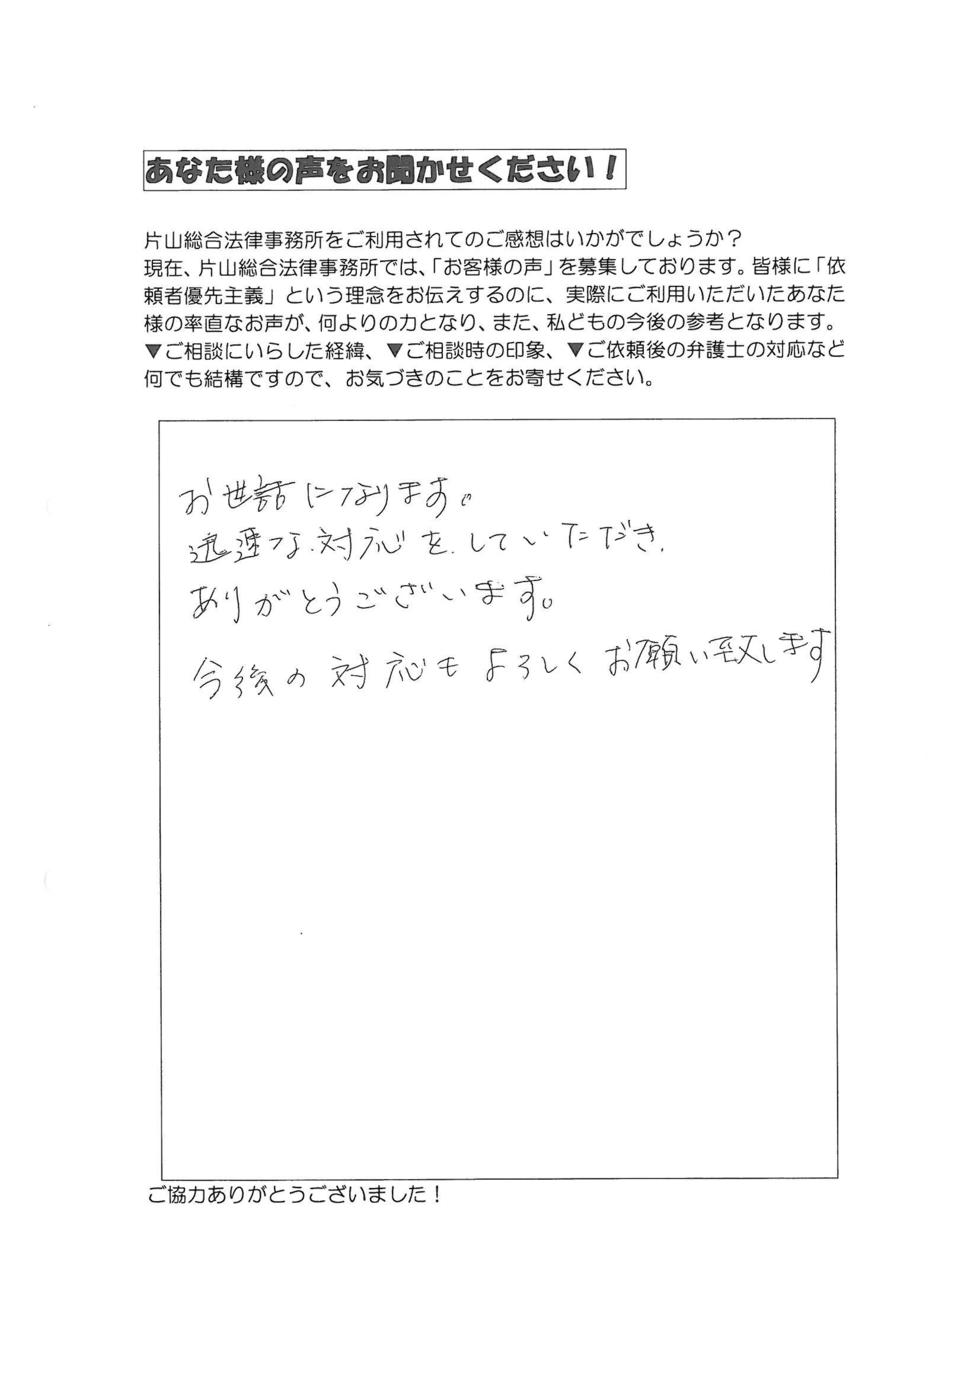 あなた様の声をお聞かせください！
片山総合法律事務所をご利用されてのご感想はいかがでしょうか？
現在、片山総合法律事務所では、「お客様の声」を募集しております。皆様に「依
頼者優先主義」という理念をお伝えするのに、実際にご利用いただいたあなた
様の率直なお声が、何よりの力となり、また、私どもの今後の参考となります。
▼ご相談にいらした経緯、▼ご相談時の印象、▼ご依頼後の弁護士の対応など
何でも結構ですので、お気づきのことをお寄せください。
お世話になります。
迅速な対応をしていただき、
ありがとうございます。
今後の対応もよろしくお願い致します
ご協力ありがとうございました！